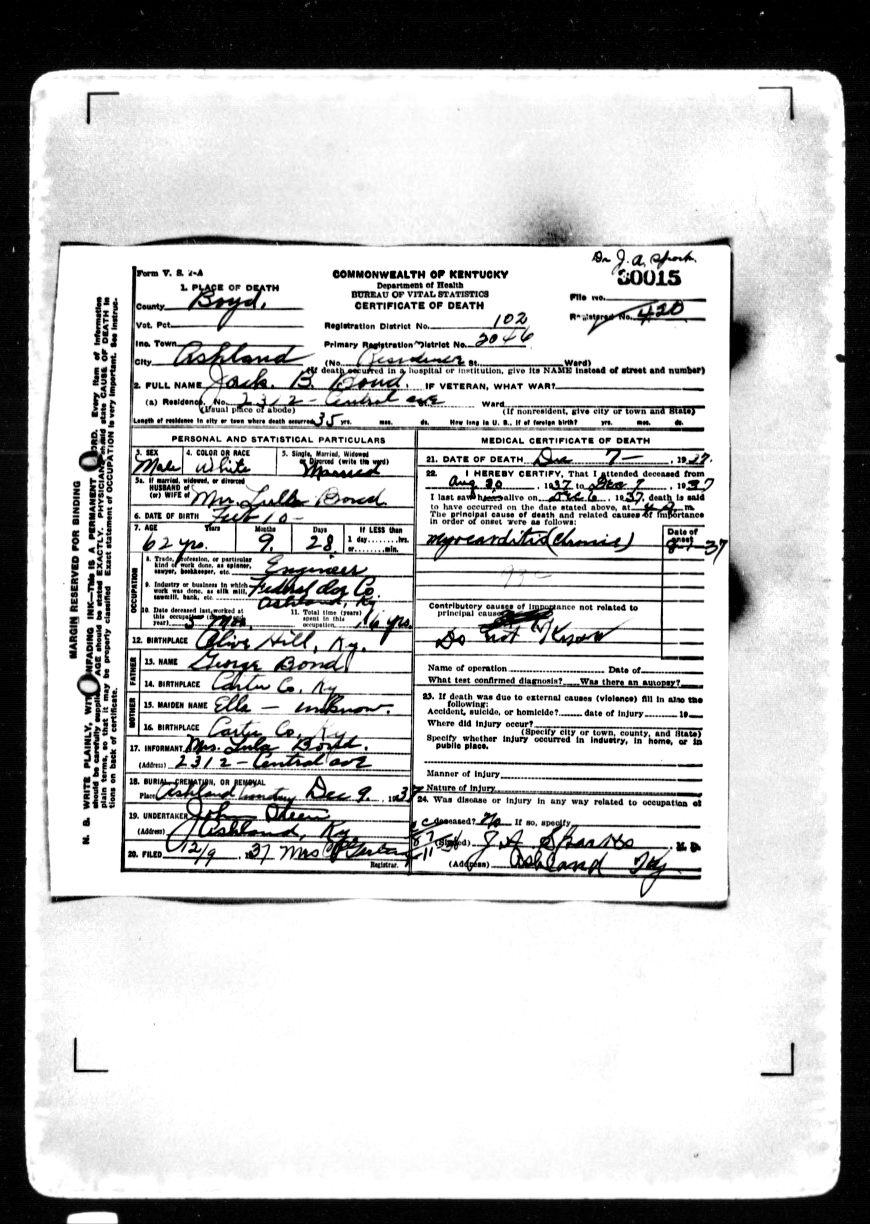 Dr J. A. Spark.
Form V. S. 1-A
COMMONWEALTH OF KENTUCKY
30015
1. PLACE OF DEATH
Department of Health
BUREAU OF VITAL STATISTICS
File No.
County Boyd.
CERTIFICATE OF DEATH
Registered No. 420
Vot. Pct.
Registration District No. 102
Inc. Town
Primary Registration District No. 2046
City Ashland (No. Residence St. Ward)
(If death occurred in a hospital or institution, give its NAME instead of street and number)
2. FULL NAME Jack. B. Bond. IF VETERAN, WHAT WAR?
(a) Residence, No. 2312 - Central ave Ward
(Usual place of abode) (If nonresident, give city or town and State)
Length of residence in city or town where death occurred 35 yrs. mos. ds. How long in U. S., if of foreign birth? yrs. mos. ds.
PERSONAL AND STATISTICAL PARTICULARS
3. SEX Male
4. COLOR OR RACE White
5. Single, Married, Widowed
Divorced (write the word)
Married
5a. If married, widowed, or divorced
HUSBAND of
(or) WIFE of Mrs Bond
6. DATE OF BIRTH Feb 10 -
7. AGE Years Months Days If LESS than
62 yrs. 9. 28 1 day hrs.
or min.
OCCUPATION
8. Trade, profession, or particular
kind of work done, as spinner,
sawyer, bookkeeper, etc. Engineer
9. Industry or business in which
work was done, as silk mill,
sawmill, bank, etc. Federal Co.
Ashland, Ky
10. Date deceased last worked at
this occupation (month and
year) 5 Mos.
11. Total time (years)
spent in this
occupation 16 yrs.
12. BIRTHPLACE Olive Hill, Ky.
FATHER
13. NAME George Bond
14. BIRTHPLACE Carter Co. Ky
MOTHER
15. MAIDEN NAME Ella - unknow.
16. BIRTHPLACE Carter Co. Ky
17. INFORMANT Mrs. Lula Bond.
(Address) 2312 - Central ave
18. BURIAL, CREMATION, OR REMOVAL
Place Ashland Dec 9, 1937
19. UNDERTAKER John Steen
(Address) Ashland, Ky.
20. FILED 12/9 1937 Mrs
Registrar.
MEDICAL CERTIFICATE OF DEATH
21. DATE OF DEATH Dec 7 - , 1937.
22. I HEREBY CERTIFY, That I attended deceased from
Aug 30, 1937 to Dec 7, 1937
I last saw h alive on Dec 6, 1937, death is said
to have occurred on the date stated above, at m.
The principal cause of death and related causes of importance
in order of onset were as follows:
Date of
onset
myocarditis (chronic) 8-1-37
93-
Contributory causes of importance not related to
principal cause:
Do not Know
Name of operation Date of
What test confirmed diagnosis? Was there an autopsy?
23. If death was due to external causes (violence) fill in also the
following:
Accident, suicide, or homicide? date of injury 19
Where did injury occur?
(Specify city or town, county, and State)
Specify whether injury occurred in industry, in home, or in
public place.
Manner of injury
Nature of injury
24. Was disease or injury in any way related to occupation of
deceased? No If so, specify
(Signed) J A Sparks M. D.
(Address) Ashland Ky.
MARGIN RESERVED FOR BINDING
N. B. WRITE PLAINLY, WITH UNFADING INK—This IS A PERMANENT RECORD. Every item of information
should be carefully supplied. AGE should be stated EXACTLY. PHYSICIANS should state CAUSE OF DEATH in
plain terms, so that it may be properly classified. Exact statement of OCCUPATION is very important. See instruc-
tions on back of certificate.